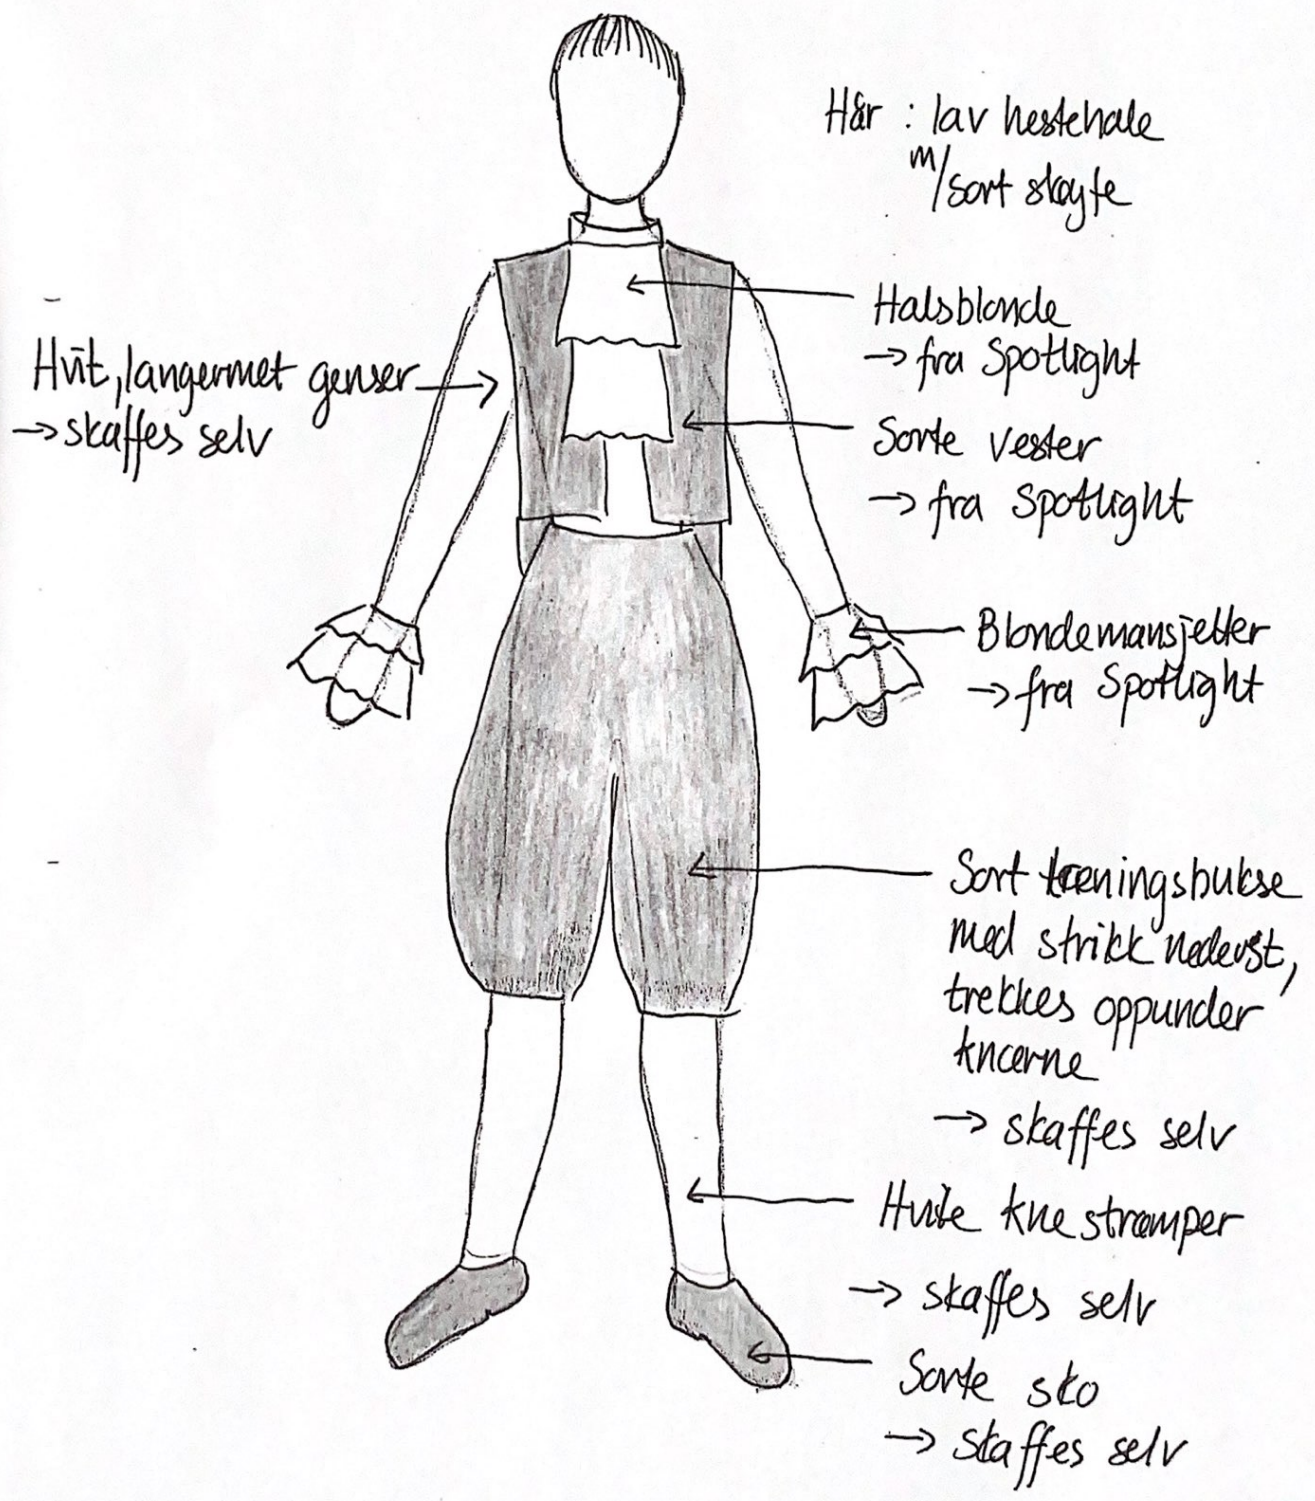 Hår : lav hestehale
m/sort sløyfe
Halsblonde
→ fra Spotlight
Hvit, langermet genser
→ skaffes selv
Sorte vester
→ fra Spotlight
Blondemansjetter
→ fra Spotlight
Sort treningsbukse
med strikk nederst,
trekkes oppunder
knærne
→ skaffes selv
Hvite knestrømper
→ skaffes selv
Sorte sko
→ skaffes selv